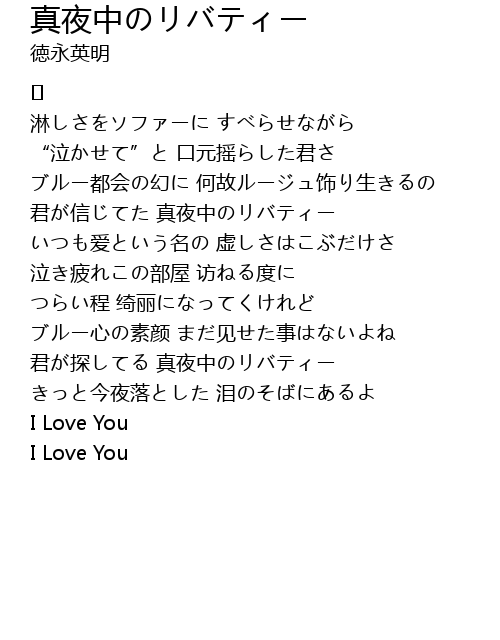 真夜中のリバティー
徳永英明
淋しさをソファーに すべらせながら
“泣かせて”と 口元揺らした君さ
ブルー都会の幻に 何故ルージュ饰り生きるの
君が信じてた 真夜中のリバティー
いつも爱という名の 虚しさはこぶだけさ
泣き疲れこの部屋 访ねる度に
つらい程 绮丽になってくけれど
ブルー心の素颜 まだ见せた事はないよね
君が探してる 真夜中のリバティー
きっと今夜落とした 泪のそばにあるよ
I Love You
I Love You